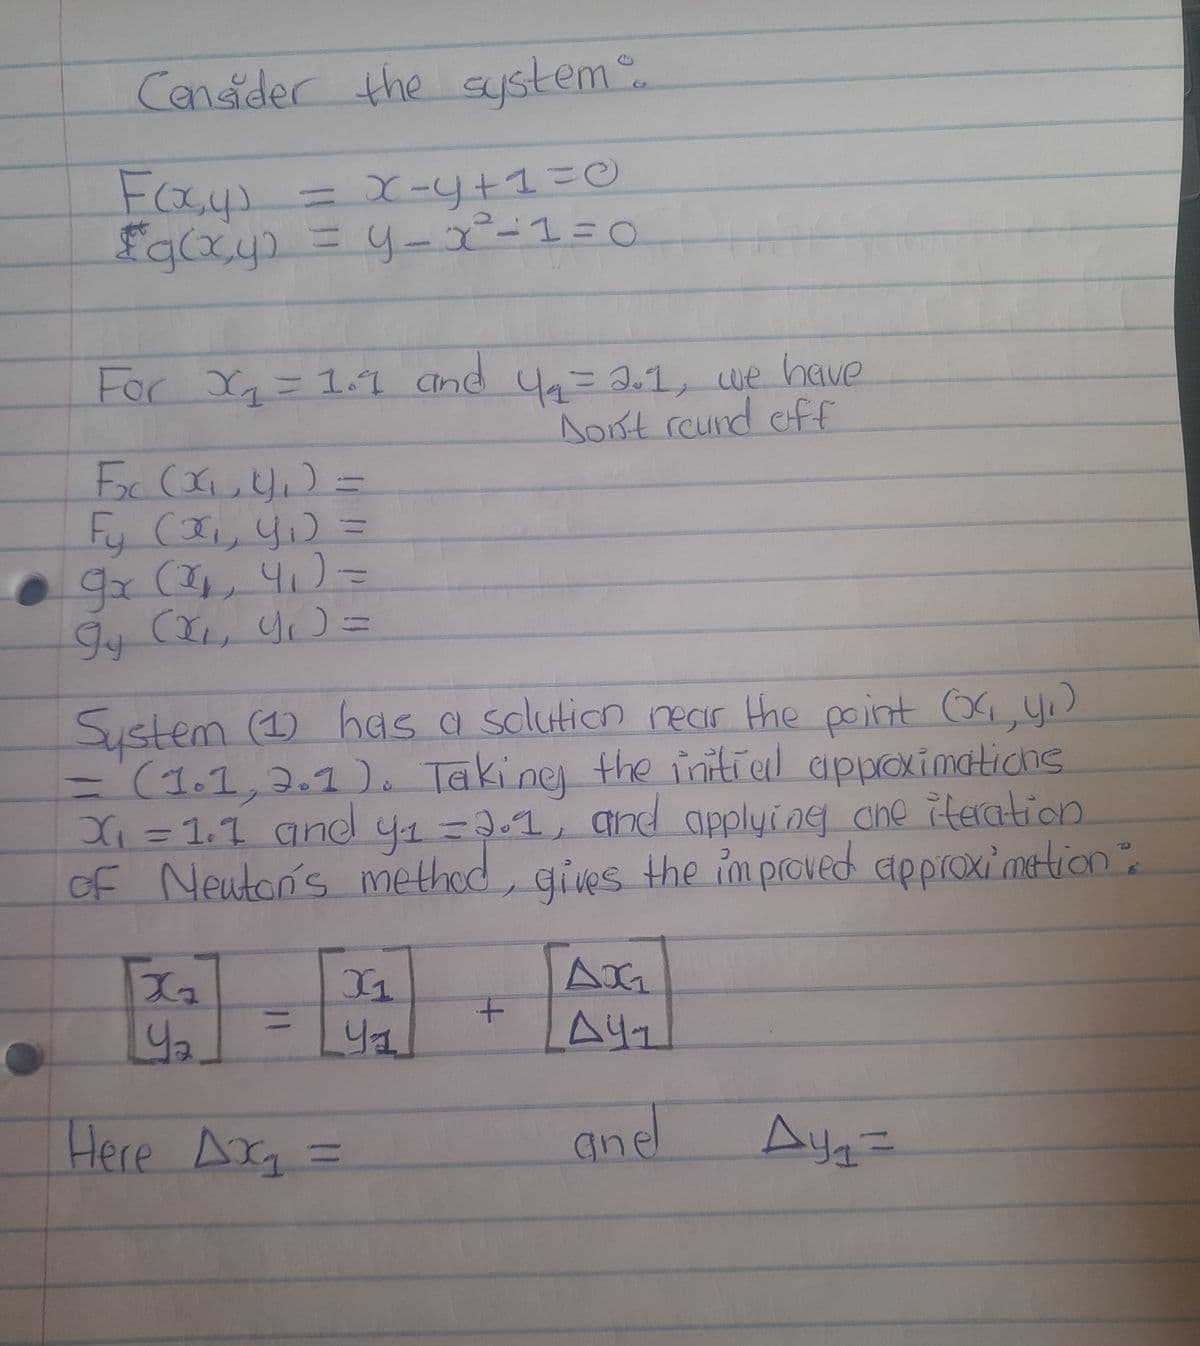 Consider the system:
F(x,y) = x-y+1=0
g(x,y) = y-x²-1=0
For x₁ = 1.1 and y₁ = 2.1, we have
Don't round off
Fx (x₁, y₁) =
Fy (x₁, y₁) =
gx (x₁, y₁) =
gy (x₁, y₁) =
System (1) has a solution near the point (x₁, y₁)
= (1.1, 2.1). Taking the initial approximations
x₁ = 1.1 and y₁ = 2.1, and applying one iteration
of Newton's method, gives the improved approximation:
[x₂ y₂] = [x₁ y₁] + [Δx₁ Δy₁]
Here Δx₁ = and Δy₁ =